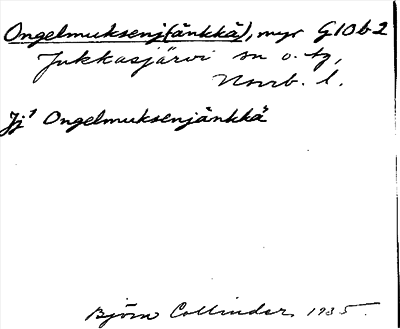 Ongelmuksenj(änkkä), myr G10b2
Jukkasjärvi sn o. tg,
Norrb. l.
Jj¹ Ongelmuksenjänkkä
Björn Collinder 1935.